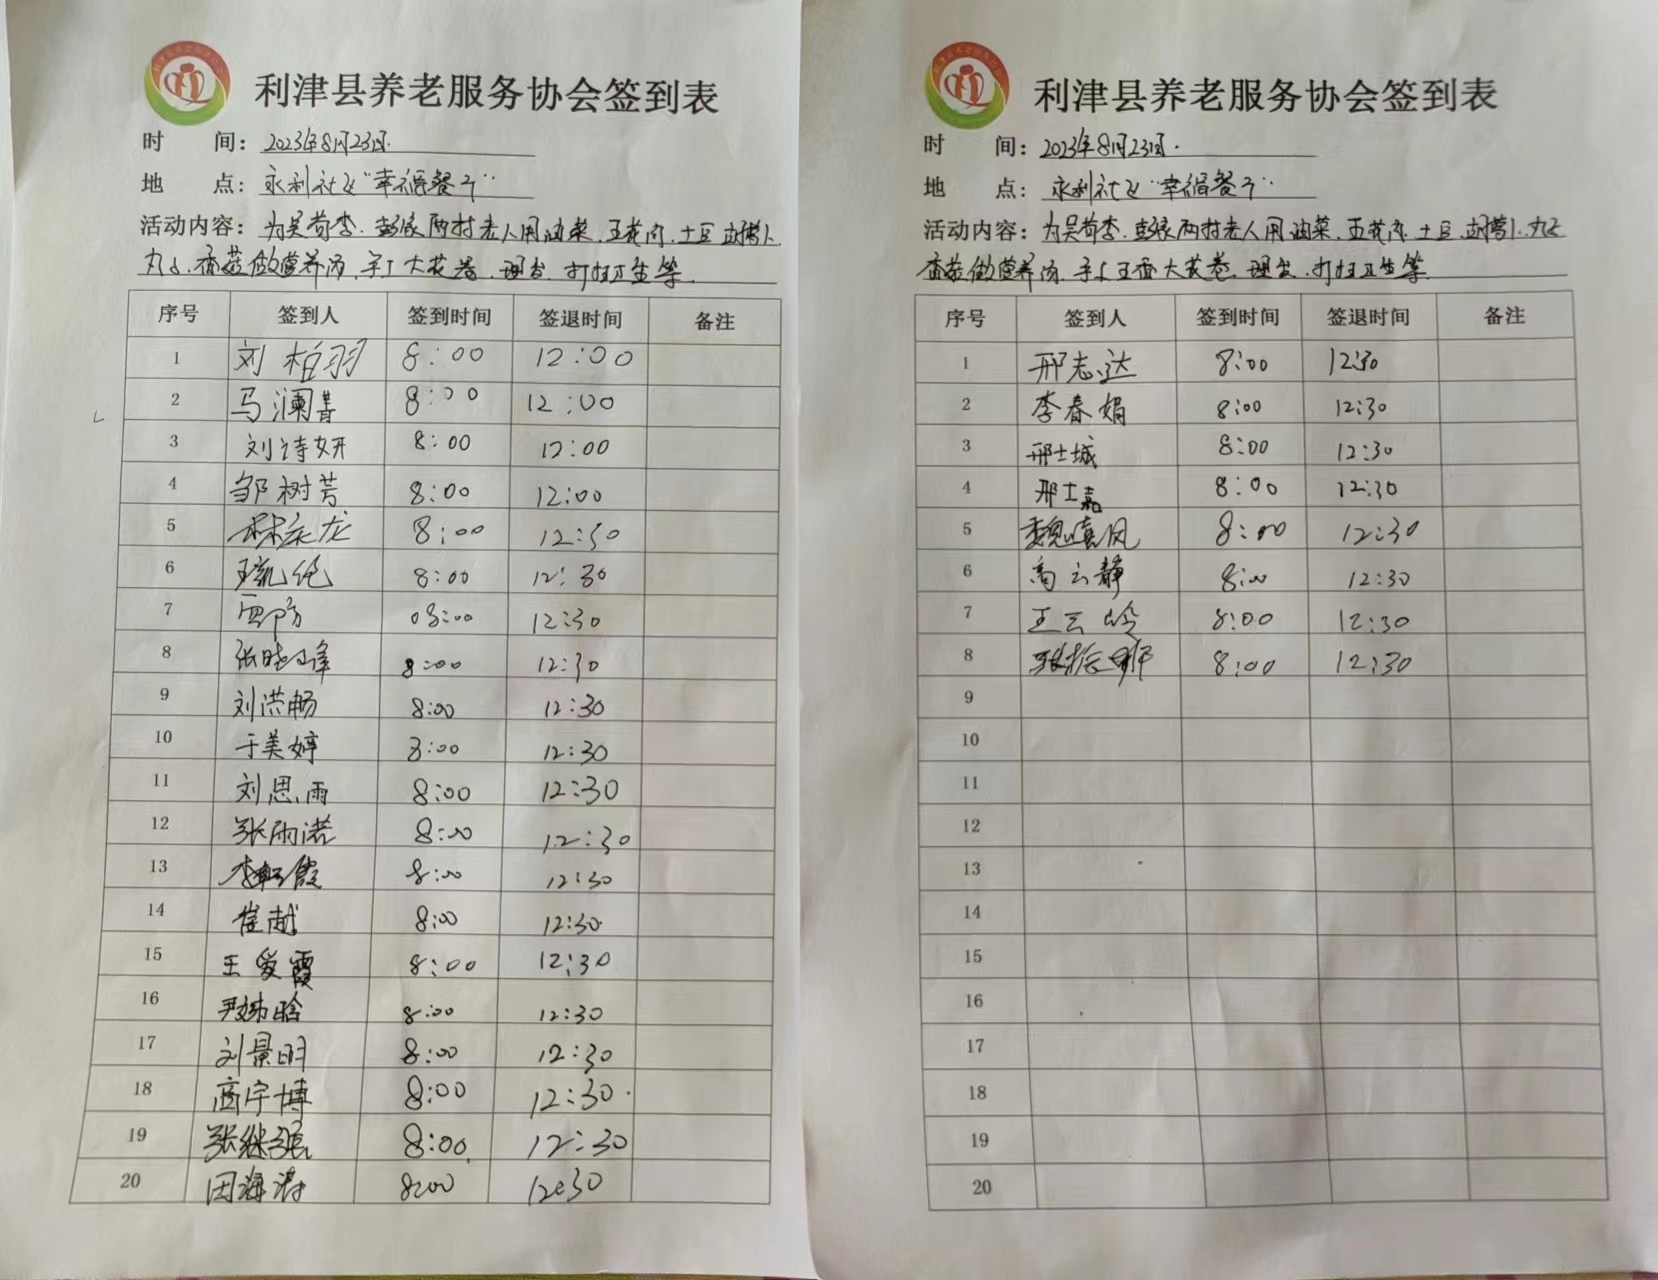 利津县养老服务协会签到表
时 间：2023年8月23日.
地 点：永利社区“幸福餐厅”
活动内容：为吴苟李、彭家两村老人用油菜、五花肉、土豆、胡萝卜、
丸子、香菇做营养汤、手工大花卷、理发、打扫卫生等.
序号 签到人 签到时间 签退时间 备注
1 刘柏羽 8:00 12:00
2 马澜菁 8:00 12:00
3 刘诗妍 8:00 12:00
4 邹树芳 8:00 12:00
5 8:00 12:30
6 8:00 12:30
7 08:00 12:30
8 张晓峰 8:00 12:30
9 刘洪畅 8:00 12:30
10 于美婷 8:00 12:30
11 刘思雨 8:00 12:30
12 张雨诺 8:00 12:30
13 8:00 12:30
14 崔越 8:00 12:30
15 王爱霞 8:00 12:30
16 8:00 12:30
17 刘景明 8:00 12:30
18 商宇博 8:00 12:30
19 张继强 8:00 12:30
20 田海涛 8:00 12:30
利津县养老服务协会签到表
时 间：2023年8月23日.
地 点：永利社区“幸福餐厅”
活动内容：为吴苟李、彭家两村老人用油菜、五花肉、土豆、胡萝卜、丸子
香菇做营养汤、手工玉面大花卷、理发、打扫卫生等.
序号 签到人 签到时间 签退时间 备注
1 邢志达 8:00 12:30
2 李春娟 8:00 12:30
3 邢士城 8:00 12:30
4 邢士嘉 8:00 12:30
5 魏嘻凤 8:00 12:30
6 高云静 8:00 12:30
7 王云岭 8:00 12:30
8 8:00 12:30
9
10
11
12
13
14
15
16
17
18
19
20